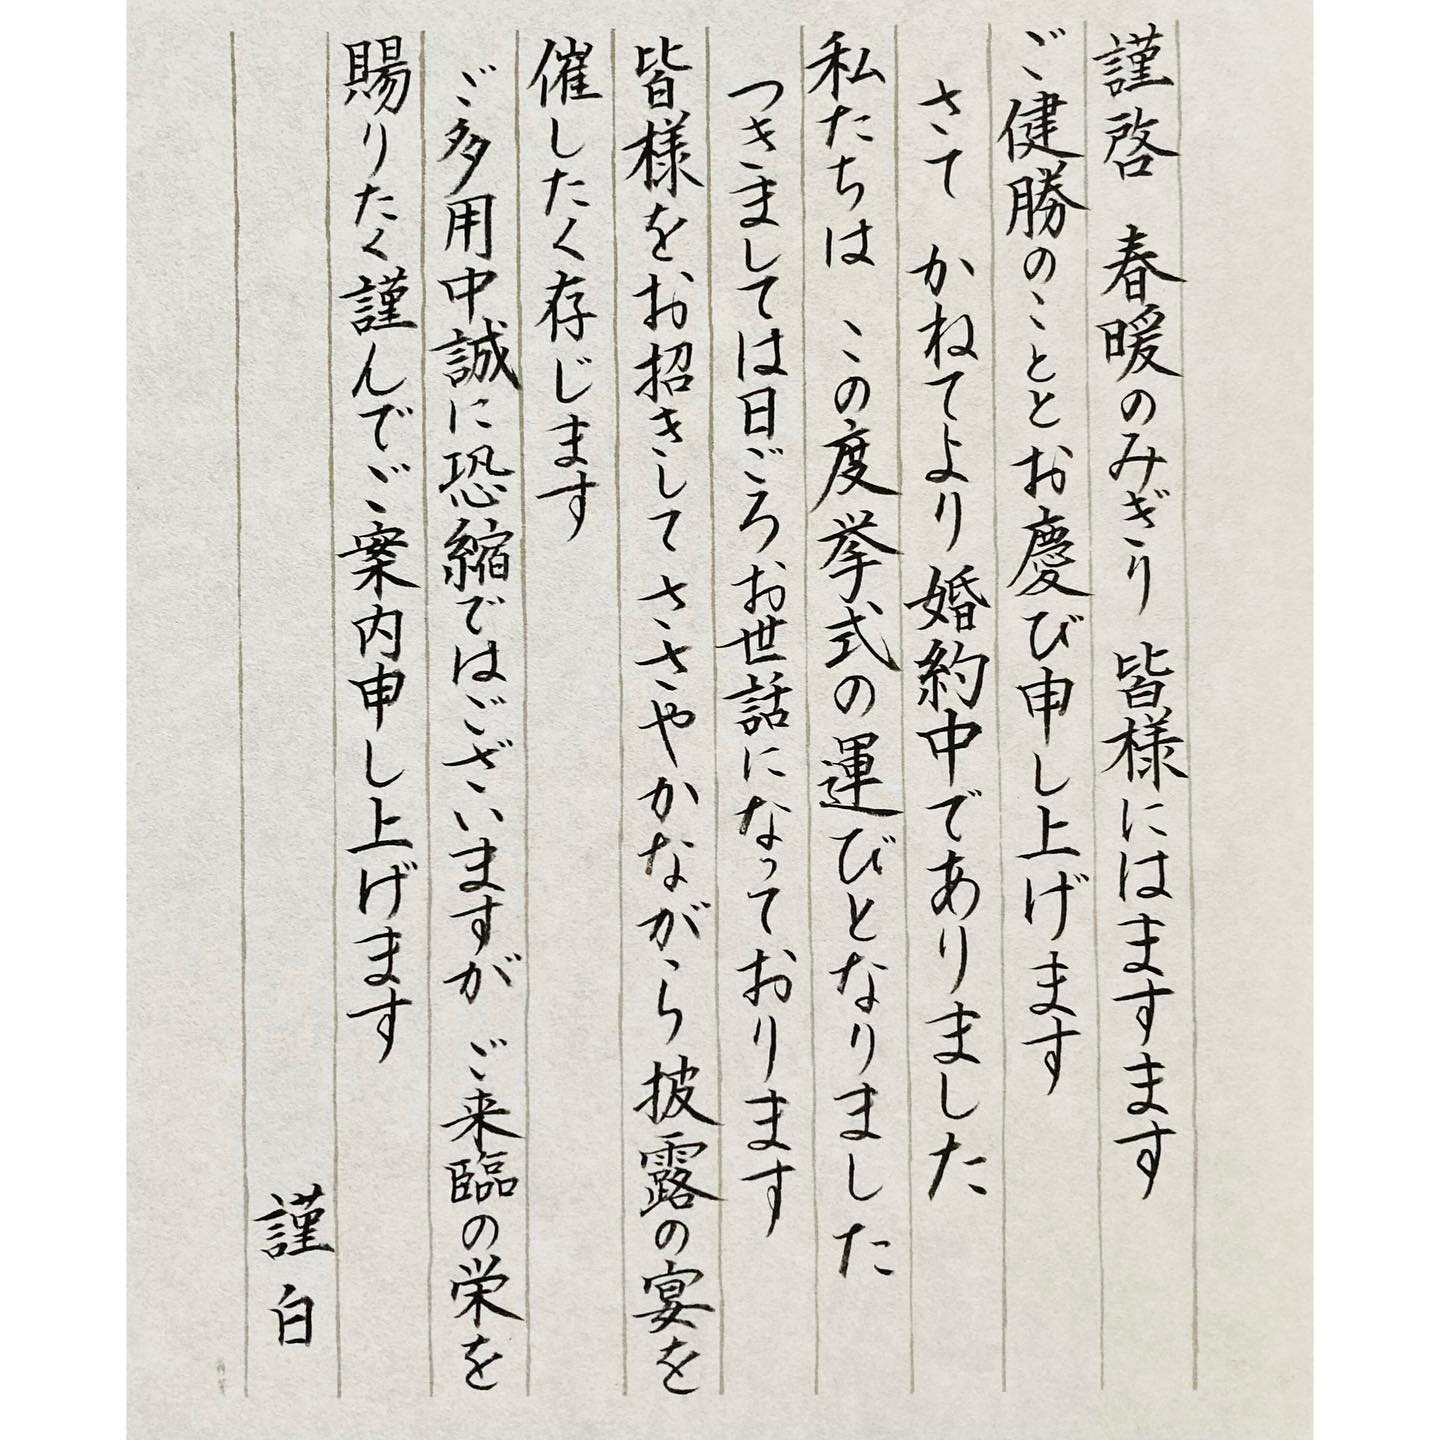 謹啓 春暖のみぎり 皆様にはますます
ご健勝のこととお慶び申し上げます
さて かねてより婚約中でありました
私たちは この度挙式の運びとなりました
つきましては日ごろお世話になっております
皆様をお招きして ささやかながら披露の宴を
催したく存じます
ご多用中誠に恐縮ではございますが ご来臨の栄を
賜りたく謹んでご案内申し上げます
謹白